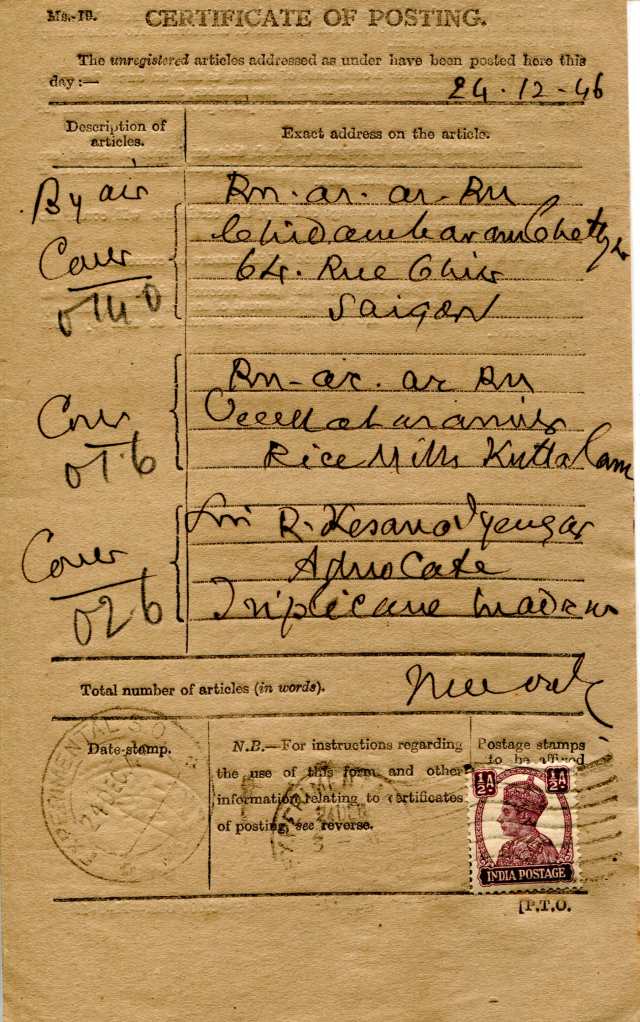 Ms.-19. CERTIFICATE OF POSTING.
The unregistered articles addressed as under have been posted here this
day :— 24-12-46
Description of articles.
Exact address on the article.
By air
Cover
014.0
Rm. ar. ar. Rm
Chidambaram Chettyr
64. Rue Ohier
Saigon
Cover
01.6
Rm-ar. ar Rm
Rice Mills Kuttalam
Cover
026
Sri R. Kesava Iyengar
Advocate
Triplicane Madras
Total number of articles (in words).
Date-stamp.
EXPERIMENTAL S.O
24 DEC
N.B.—For instructions regarding
the use of this form and other
information relating to certificates
of posting, see reverse.
24 DEC
Postage stamps
to be affixed
½A ½A
INDIA POSTAGE
[P.T.O.